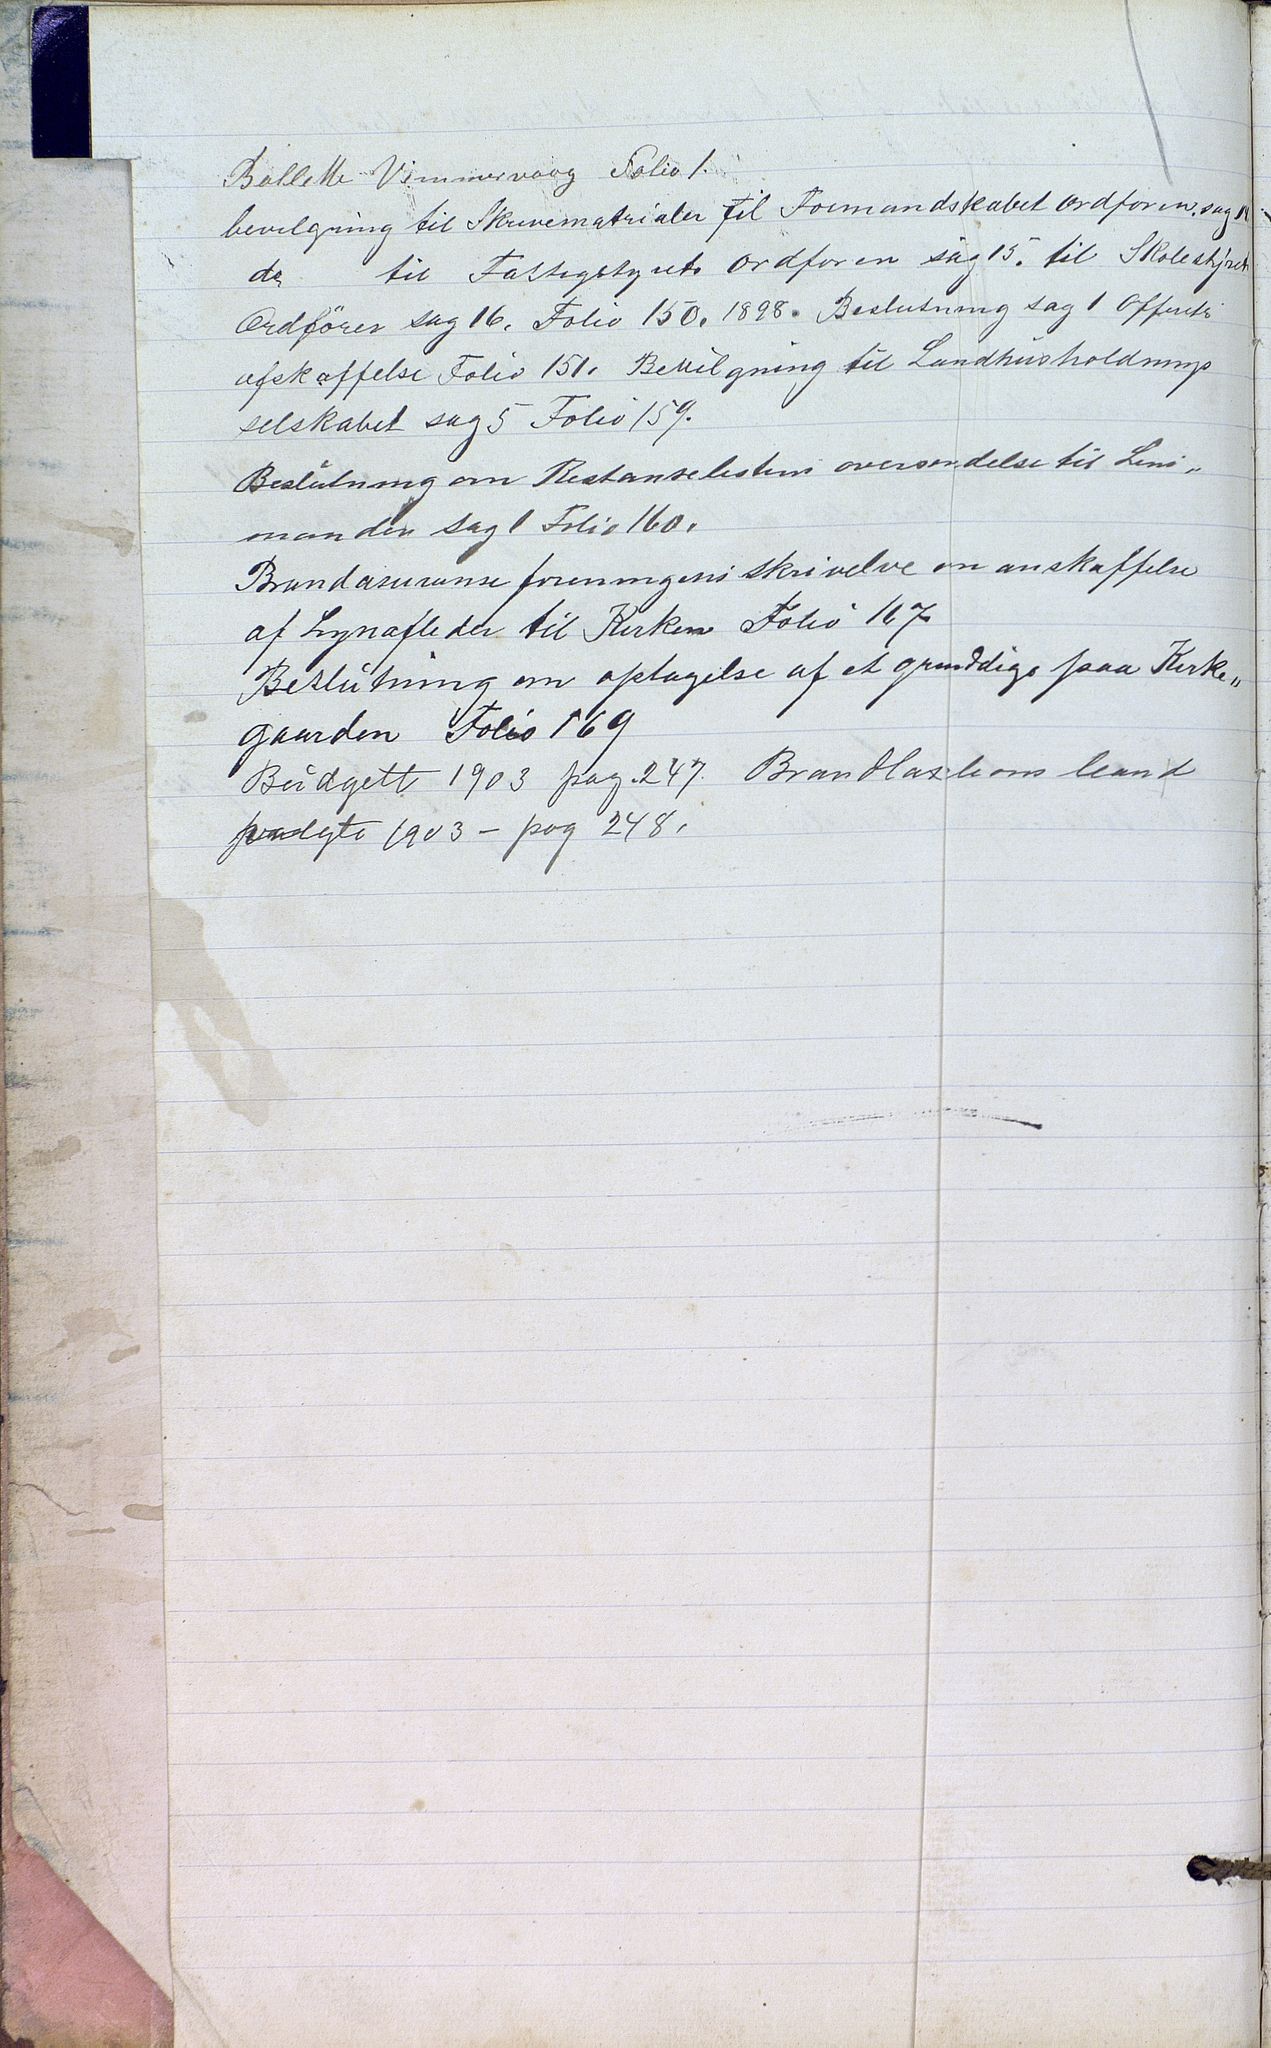 Bollette Vimmervaag Folio 1.
bevilgning til Skrivematrialer til Formandskabet Ordforen. sag
do til Fattigstyrets ordforen sag 15. til Skolestyrets
Ordfører sag 16. Folio 150. 1898. Beslutning sag 1 Offerets
afskaffelse Folio 151. Bevilgning til Landhusholdnings
selskabet sag 5 Folio 159.
Beslutning om Restanselistens oversendelse til Lens„
manden sag 1 Folio 160.
Brandasuranseforeningens skrivelve om anskaffelse
af Lynafleder til Kirken Folio 167
Beslutning om optagelse af et grunddige paa Kirke„
gaarden Folio 169
Budgett 1903 pag. 247.
1903 – pag 248.